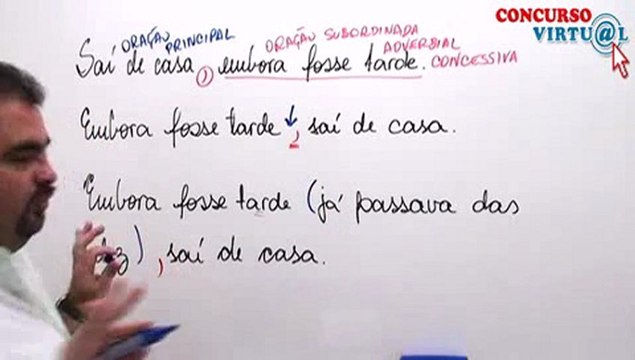 CONCURSO
VIRTU@L
ORAÇÃO PRINCIPAL ORAÇÃO SUBORDINADA
ADVERBIAL
Saí de casa, embora fosse tarde. CONCESSIVA
Embora fosse tarde, saí de casa.
Embora fosse tarde (já passava das
), saí de casa.